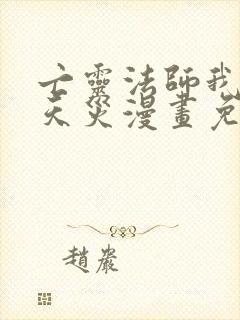 亡靈法師我
天災漫畫免
趙巖